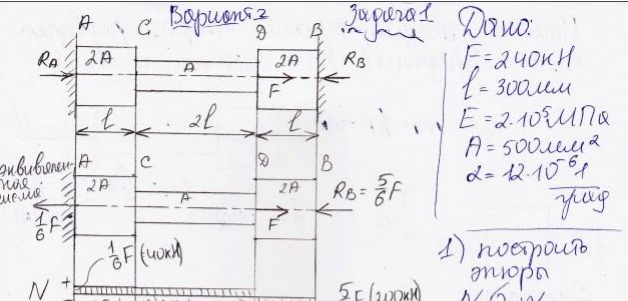 Вариант 2 Задача 1
A C D B
2A A 2A
R_A F R_B
l 2l l
A C D B
2A A 2A
R_B = 5/6 F
1/6 F F
1/6 F (40кН)
N +
5F (200кН)
Дано:
F = 240кН
l = 300мм
E = 2·10⁵МПа
A = 500мм²
α = 12·10⁻⁶ 1/град
1) построить
эпюры